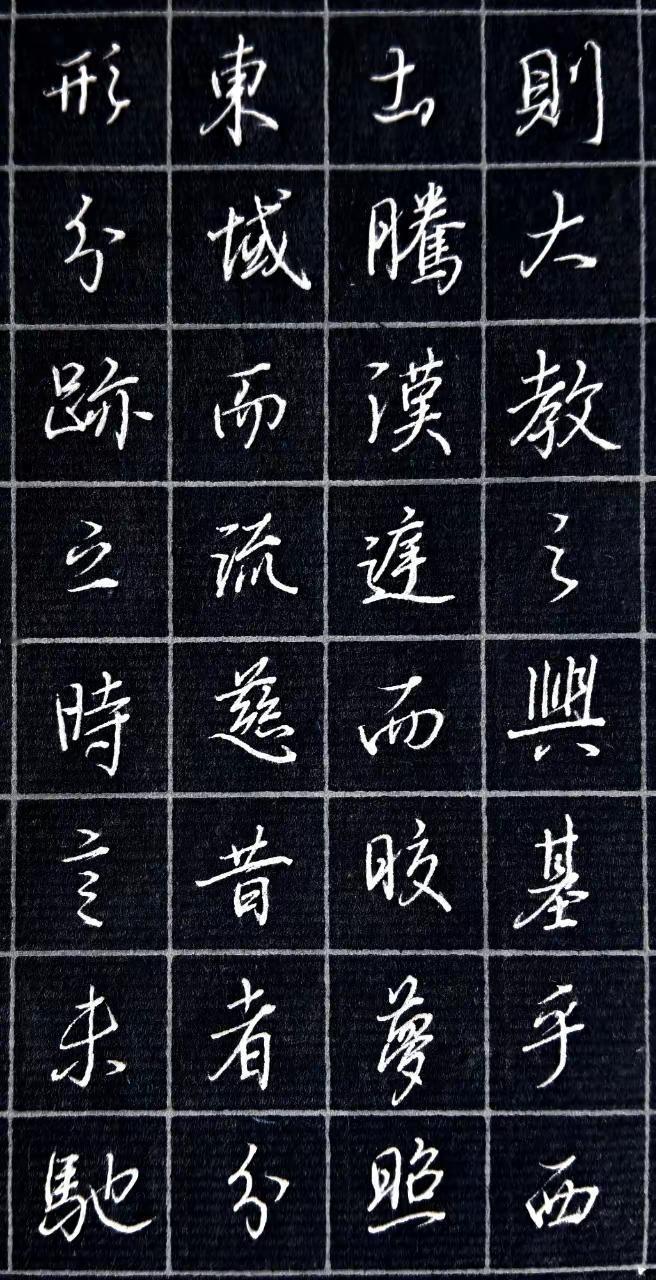 則大教之興基乎西
土騰漢庭而皎夢照
東域而流慈昔者分
形分跡之時言未馳